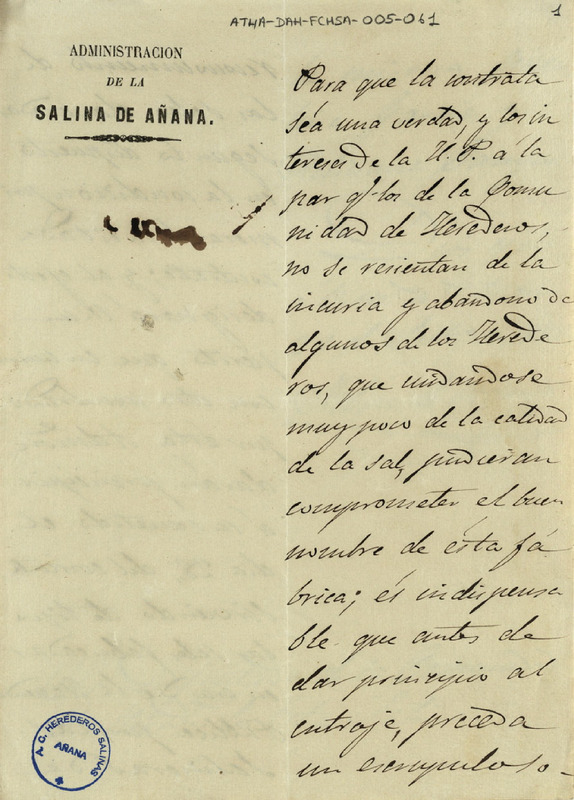 ATHA-DAH-FCHSA-005-061
1
ADMINISTRACION
DE LA
SALINA DE AÑANA.
Para que la contrata
séa una verdad, y los in
tereses de la H. P. a la
par q.e los de la Comu
nidad de Herederos,
no se resientan de la
incuria y abandono de
algunos de los Herede
ros, que cuidandose
muy poco de la calidad
de la sal, pudieran
comprometer el buen
nombre de ésta fá
brica; és indispensa
ble que antes de
dar principio al
entraje, preceda
un escrupuloso-
A. C. HEREDEROS SALINAS
AÑANA